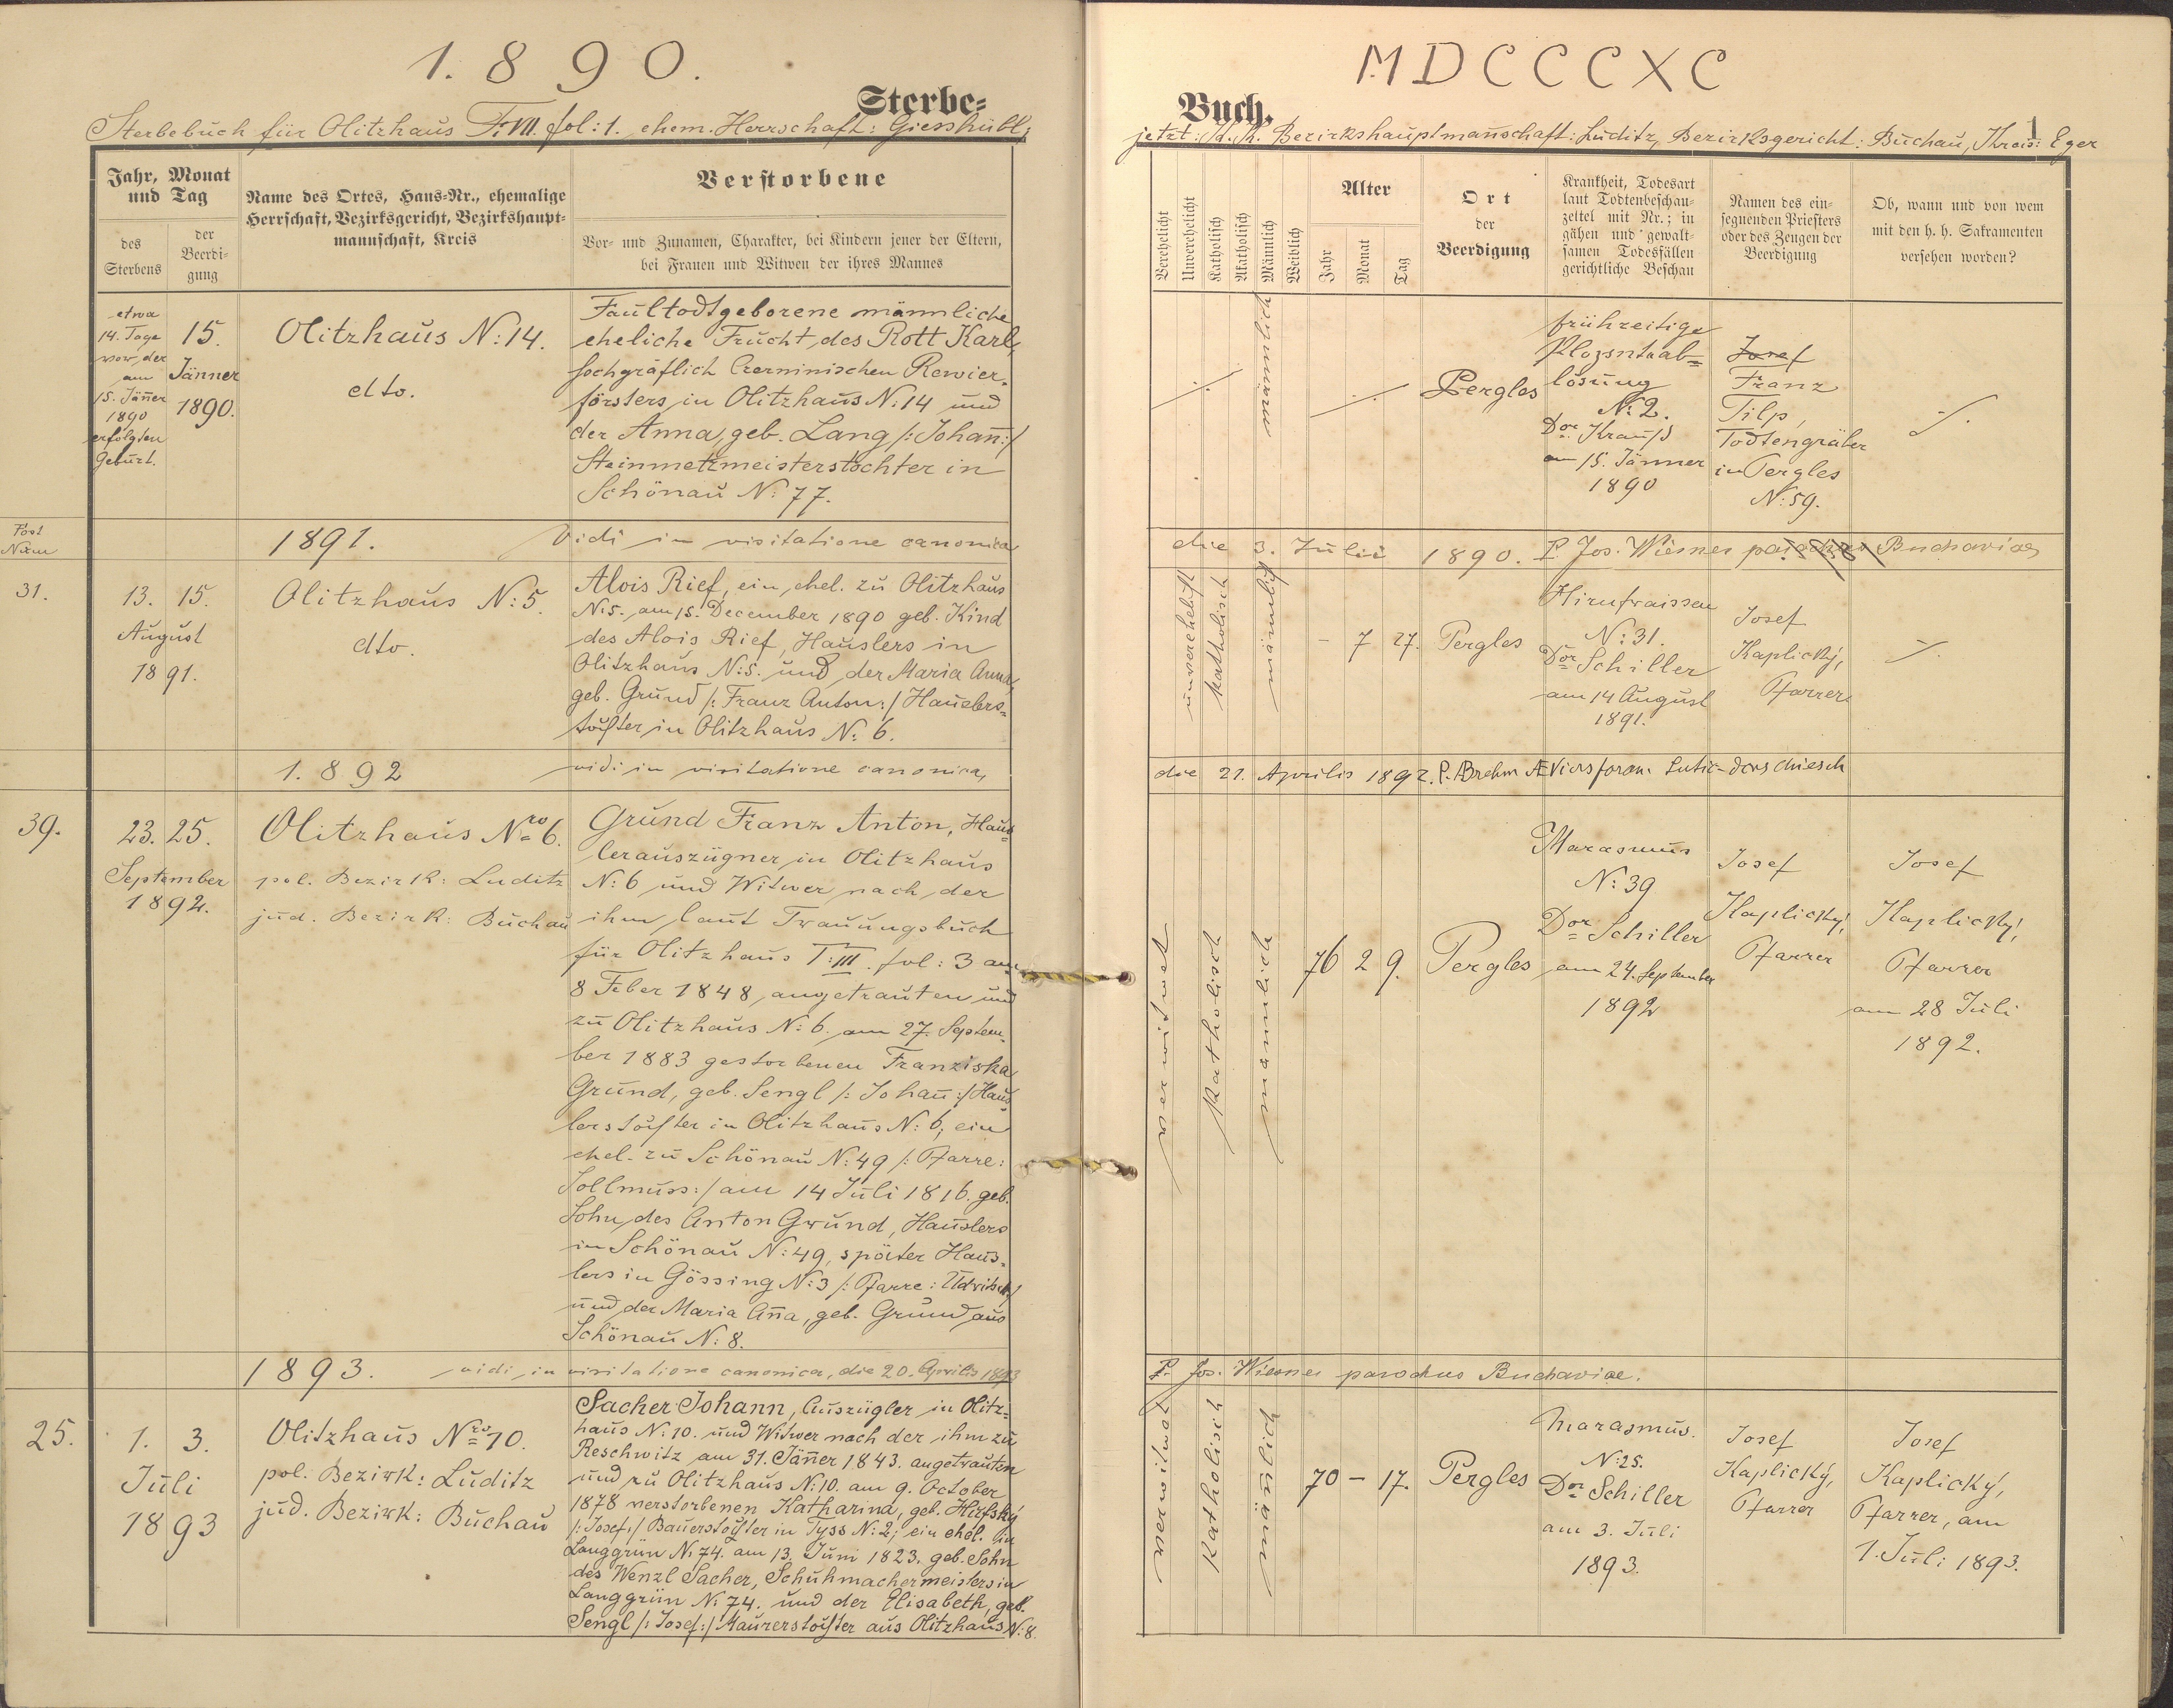 1.890.
Sterbe=
Sterbebuch für Olitzhaus T:VII. fol: 1. ehem. Herrschaft: Giesshübl,
Jahr, Monat und Tag
des Sterbens
der Beerdi-gung
Name des Ortes, Haus-Nr., ehemalige
Herrschaft, Bezirksgericht, Bezirkshaupt-
mannschaft, Kreis
Verstorbene
Vor- und Zunamen, Charakter, bei Kindern jener der Eltern,
bei Frauen und Witwen der ihres Mannes
etwa
14. Tage
vor der
am
15. Jäner
1890
erfolgten
Geburt.
15.
Jänner
1890.
Olitzhaus N: 14.
dto.
Faultodtgeborene männliche
eheliche Frucht des Rott Karl,
hochgräflich Czerninischen Revier-
försters in Olitzhaus N: 14 und
der Anna, geb. Lang /: Johan̄ :/
Steinmetzmeisterstochter in
Schönau N: 77.
Post
Num
1891.
Vidi in visitatione canonica
31.
13. 15.
August
1891.
Olitzhaus N: 5.
dto.
Alois Rief, ein ehel. zu Olitzhaus
N: 5. am 15. December 1890 geb. Kind
des Alois Rief, Hauslers in
Olitzhaus N: 5. und der Maria Anna,
geb. Grund /: Franz Anton :/ Hauslers=
tochter in Olitzhaus N: 6.
1.892
vidi in visitatione canonica,
39.
23. 25.
September
1892.
Olitzhaus Nro 6.
pol. Bezirk: Luditz
jud. Bezirk: Buchau
Grund Franz Anton, Haus=
lerauszügner in Olitzhaus
N: 6 und Witwer nach der
ihm laut Trauungsbuch
für Olitzhaus T: III. fol: 3 am
8 Feber 1848 angetrauten und
zu Olitzhaus N: 6. am 27. Septem-
ber 1883 gestorbenen Franziska
Grund, geb. Sengl /: Johan̄ :/ Haus
lerstochter in Olitzhaus N: 6; ein
ehel. zu Schönau N: 49 /: Pfarre:
Sollmuss :/ am 14 Juli 1816. geb.
Sohn des Anton Grund, Hauslers
in Schönau N: 49, später Haus-
lers in Gössing N: 3 /: Pfarre: Udritsch :/
und der Maria An̄a, geb. Grund aus
Schönau N: 8.
1893. vidi in visitatione canonica, die 20. Aprilis 1893
25.
1. 3.
Juli
1893
Olitzhaus Nro 10.
pol. Bezirk: Luditz
jud. Bezirk: Buchau
Sacher Johann, Auszügler in Olitz=
haus N: 10. und Witwer nach der ihm zu
Reschwitz am 31. Jän̄er 1843. angetrauten
und zu Olitzhaus N: 10. am 9. October
1878 verstorbenen Katharina, geb.
/: Josef :/ Bauerstochter in Tyss N: 2; ein ehel. in
Langgrün N: 74. am 13. Juni 1823. geb. Sohn
des Wenzl Sacher, Schuhmachermeisters in
Langgrün N: 74. und der Elisabeth, geb.
Sengl /: Josef :/ Maurerstochter aus Olitzhaus N: 8.
MDCCCXC
Buch.
1
jetzt: K. K. Bezirkshauptmanschaft: Luditz, Bezirksgericht: Buchau, Kreis: Eger
Verehelicht
Unverehelicht
Katholisch
Akatholisch
Männlich
Weiblich
Alter
Jahr
Monat
Tag
Ort
der
Beerdigung
Krankheit, Todesart
laut Todtenbeschau-
zettel mit Nr.; in
gähen und gewalt-
samen Todesfällen
gerichtliche Beschau
Namen des ein-
segnenden Priesters
oder des Zeugen der
Beerdigung
Ob, wann und von wem
mit den h. h. Sakramenten
versehen worden?
männlich
Pergles
frühzeitige
Plazentaab=
lösung
N: 2.
Dor Krauss
am 15. Jänner
1890
Josef
Franz
Tilp,
Todtengräber
in Pergles
N: 59.
die 3. Julii 1890. P. Jos. Wiesner parochus Buchaviae
unverehelicht
katholisch
männlich
- 7 27.
Pergles
Hirnfraissen
N: 31.
Dor Schiller
am 14 August
1891.
Josef
Kaplický,
Pfarrer
die 21. Aprilis 1892. P. Brehm
verwitwet
katholisch
männlich
76 2 9.
Pergles
Marasmus
N: 39
Dor Schiller
am 24. September
1892
Josef
Kaplický,
Pfarrer
Josef
Kaplický,
Pfarrer
am 28 Juli
1892.
P. Jos. Wiesner parochus Buchaviae.
verwitwet
katholisch
män̄lich
70 - 17.
Pergles
Marasmus.
N: 25.
Dor Schiller
am 3. Juli
1893.
Josef
Kaplický,
Pfarrer
Josef
Kaplický,
Pfarrer, am
1. Juli 1893.